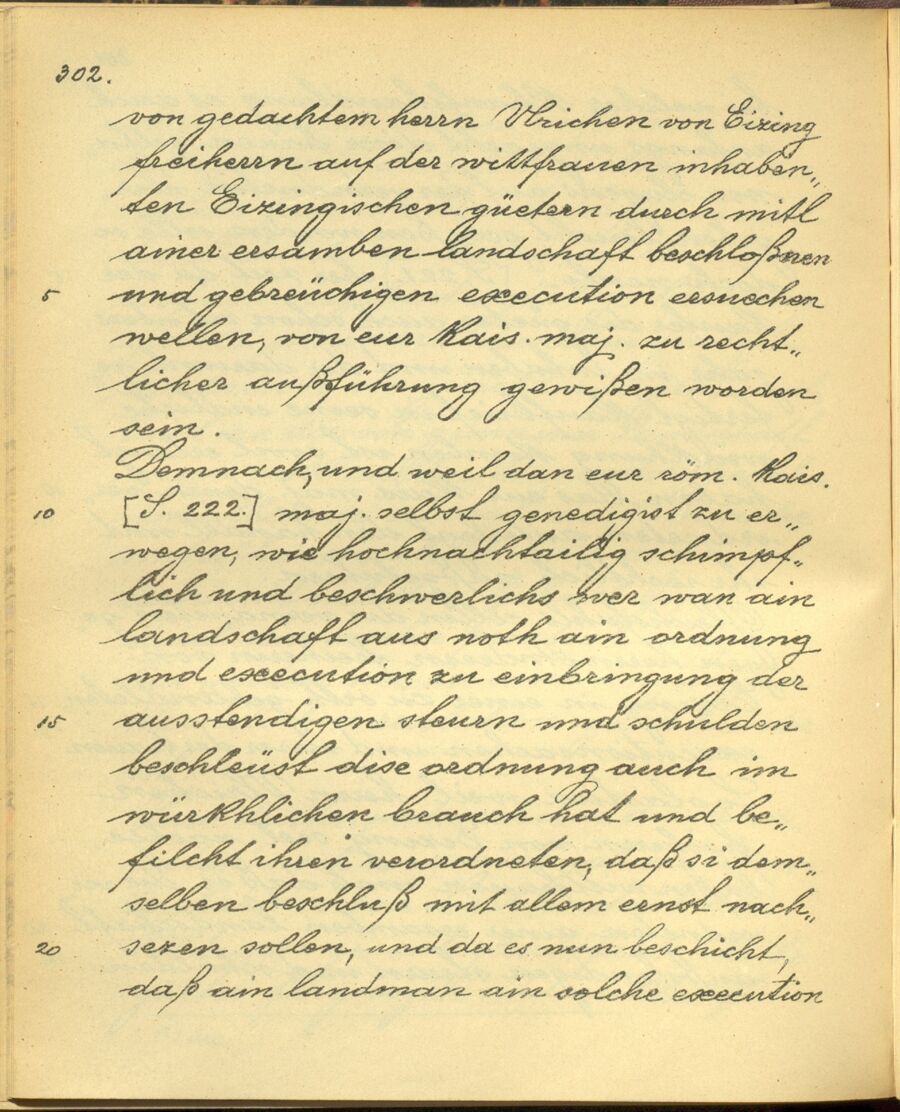 302.
von gedachtem herrn Ulrichen von Eizing
freiherrn auf der wittfrauen inhaben„
ten Eizingischen güetern durch mitl
ainer ersamben landschaft beschloßnen
5 und gebreüchigen execution ersuechen
wellen, von eur Kais. maj. zu recht„
licher außführung gewißen worden
sein.
Demnach, und weil dan eur röm. Kais.
10 [S. 222.] maj. selbst genedigist zu er„
wegen, wie hochnachtailig schimpf„
lich und beschwerlichs wer wan ain
landschaft aus noth ain ordnung
und execution zu einbringung der
15 ausstendigen steurn und schulden
beschleüst dise ordnung auch im
würkhlichen brauch hat und be„
filcht ihren verordneten, daß si dem„
selben beschluß mit allem ernst nach„
20 sezen sollen, und da es nun beschicht,
daß ain landman ain solche execution